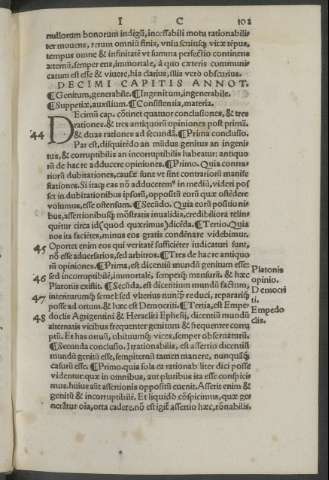 I C 102
nullorum bonorum indigũ, incessabili motu rationabilis
ter mouens, rerum omniũ finis, vnũ
tempus omne & infinitatẽ vt summa perfectio continens
æternũ, semper ens, immortale, à quo cæteris communis
catum est esse & viuere, his clarius, illis verò obscurius.
DECIMI CAPITIS ANNOT.
¶Genitum, generabile. ¶Ingenitum, ingenerabile.
¶Suppetiæ, auxilium. ¶Consistentia, materia.
Decimũ cap. cõtinet quatuor conclusiones, & tres
rationes. & tres antiquiorũ opiniones post primũ.
44 & duas rationes ad secundã. ¶Prima conclusio.
Par est, disquirẽdo an mũdus genitus an ingeni-
tus, & corruptibilis an incorruptibilis habeatur: antiquo
rũ de hac re adducere opiniones. ¶Primo. Quia contra-
riorũ dubitationes, causæ sunt vt sint contrariorũ manife
stationes. Si itaq; eas nõ adducetem9 in mediũ, videri pos
set in dubitationibus ipsorũ, oppositũ eorũ quæ ostẽdere
volumus, esse ostensum. ¶Secũdo. Quia eorũ positionis
bus, assertionibusq; mõstratis inualidis, credibiliora relin
quitur circa id (quod quærimus) dicẽda. ¶Tertio. Quia
nos ita faciẽtes, minus eos gratis condẽnare videbimur.
45 Oportet enim eos qui veritatẽ sufficiẽter iudicaturi sunt,
nõ esse aduersarios, sed arbitros. ¶Tres de hac re antiquo
rũ opiniones. ¶Prima, est dicentiũ mundũ genitum esse:
46 sed incorruptibilẽ, immortale, semperq; mansurũ. & hæc
Platonis extitit. ¶Secũda, est dicentium mundũ factum,
47 interiturumq; semel: sed vlterius nunq̃ reduci, reparariq;
posse ad ortum. & hæc est Democriti. ¶Tertia, est Empe
48 doclis Agrigentini & Heracliti Ephesij, dicentiũ mundũ
alternatis vicibus frequenter genitum & frequenter corru
ptũ. Et has
¶Secunda conclusio. Irrationabilis, est assertio dicentiũ
mundũ genitũ esse, sempiternũ tamen manere, nunquãq;
casurũ esse. ¶Primo. quia sola ea rationab liter dici posse
videntur quæ in omnibus, aut pluribus ita esse conspicis
mus. huius aũt assertionis oppositũ euenit. Asserit enim &
genitũ & incorruptibilẽ. Et liquido cõspicimus, quæ ges
nerãtur oĩa, orta cadere. nõ est igit assertio hæc, rõnabilis.
Platonis
opinio.
Democri
ti.
Empedo
clis.